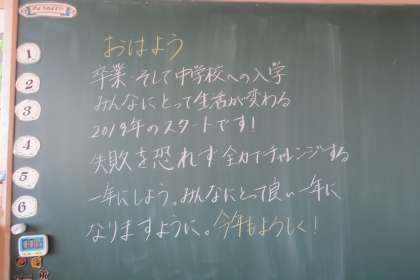 おはよう
卒業 そして中学校への入学
みんなにとって生活が変わる
2019年のスタートです！
失敗を恐れず全力でチャレンジする
一年にしよう。みんなにとって良い一年に
なりますように。今年もよろしく！
1
2
3
4
5
6